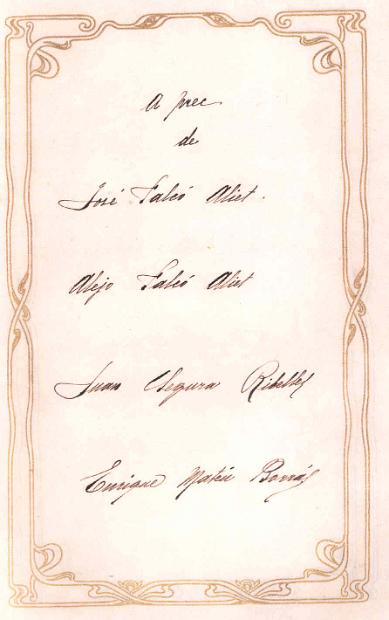 A prec
de
José Falcó Aliet.
Alejo Falcó Aliet
Juan Segura Ribelles
Enrique Mateu Borrás